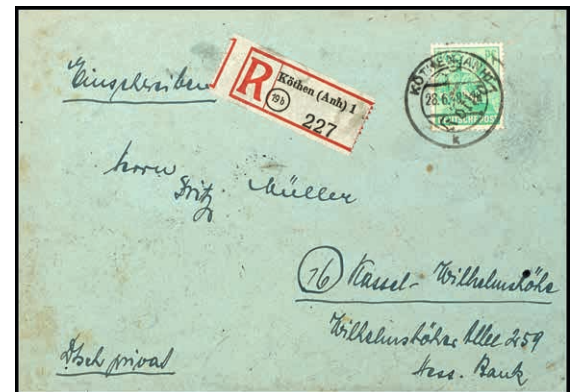 Einschreiben
R
Köthen (Anh) 1
(19b)
227
KÖTHEN (ANH) 1
28.6.
k
DEUTSCHE POST
Herrn
Fritz Müller
(16) Kassel-Wilhelmshöhe
Wilhelmshöher Allee 259
Hess. Bank
Dtsch privat